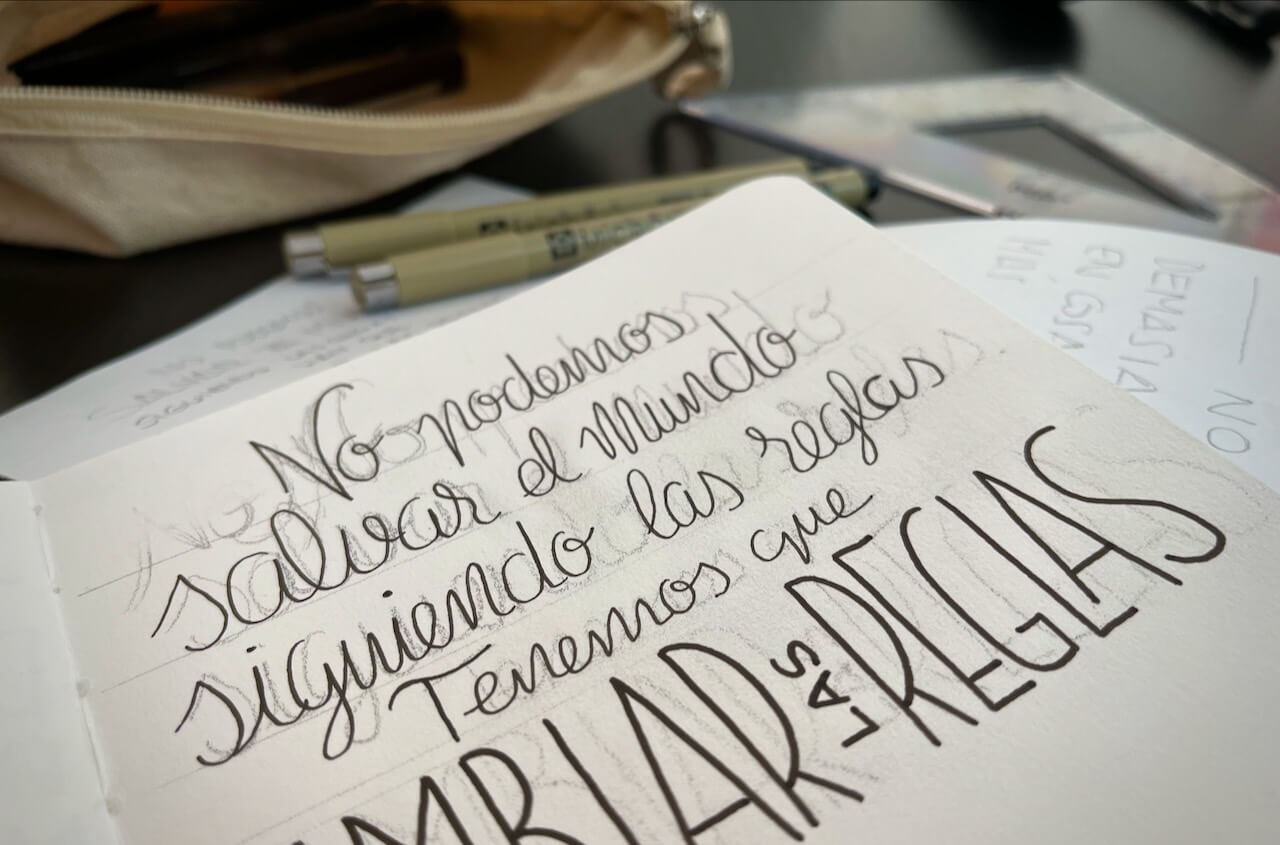 No podemos
salvar el mundo
siguiendo las reglas
Tenemos que
MBIAR LAS REGLAS
NO
DEMASIA
EN